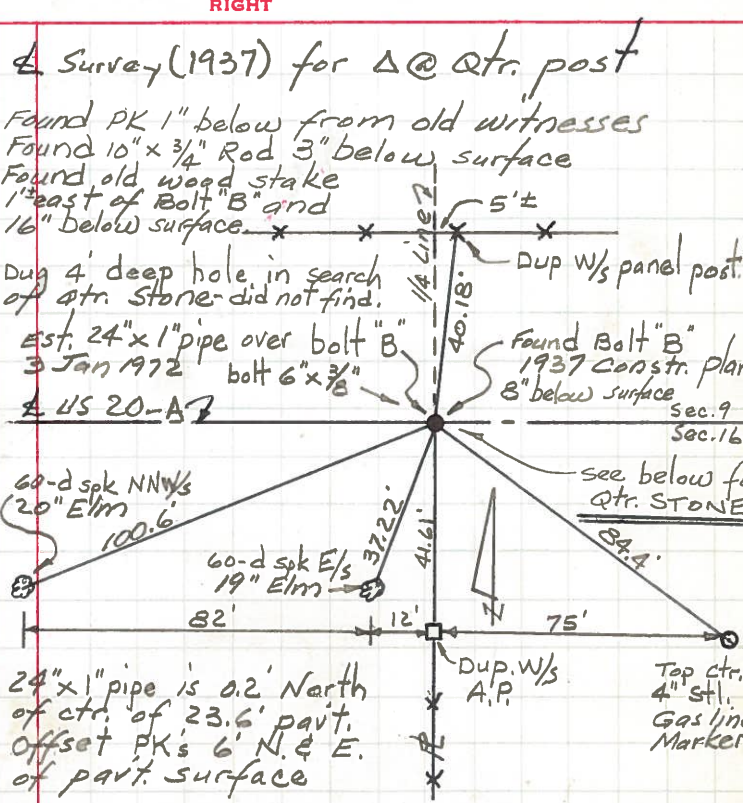 RIGHT
℄ Survey (1937) for Δ @ Qtr. post
Found PK 1" below from old witnesses
Found 10" x 3/4" Rod 3" below surface
Found old wood stake
1'± east of Bolt "B" and
16" below surface.
1/4 Line
5'±
Dup W/s panel post.
Dug 4' deep hole in search
of Qtr. Stone - did not find.
40.18'
Est. 24" x 1" pipe over bolt "B"
3 Jan 1972
bolt 6" x 3/8"
Found Bolt "B"
1937 Constr. plan
8" below surface
℄ US 20-A
Sec. 9
Sec. 16
See below
Qtr. STONE
60-d spk NNW/s
20" Elm
100.6'
37.22'
41.61'
84.4'
60-d spk E/s
19" Elm
N
82'
12'
75'
Dup. W/s
A.P.
Top ctr.
4" stl.
Gas line
Marker
24" x 1" pipe is 0.2' North
of ctr. of 23.6' pav't.
Offset PK's 6' N. & E.
of pav't. surface
℄